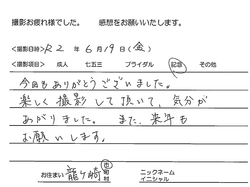 撮影お疲れ様でした。 感想をお願いいたします。
<撮影日時> R2 年 6月19日(金)
<撮影項目> 成人 七五三 ブライダル 記念 その他
今回もありがとうございました。
楽しく撮影して頂いて、気分が
あがりました。また、来年も
お願いします。
お住まい 龍ヶ崎 市 町 村 ニックネーム イニシャル